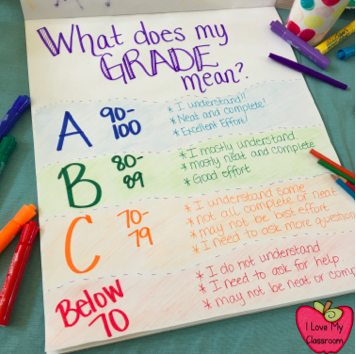 What does my
GRADE
mean?
A 90-
100
* I understand!!
* Neat and complete!
* Excellent Effort!
B 80-
89
* I mostly understand
* mostly neat and complete
* Good effort
C 70-
79
* I understand some
* not all complete or neat
* may not be best effort
* I need to ask more
Below
70
* I do not understand
* I need to ask for help
* may not be neat or
I Love My
Classroom